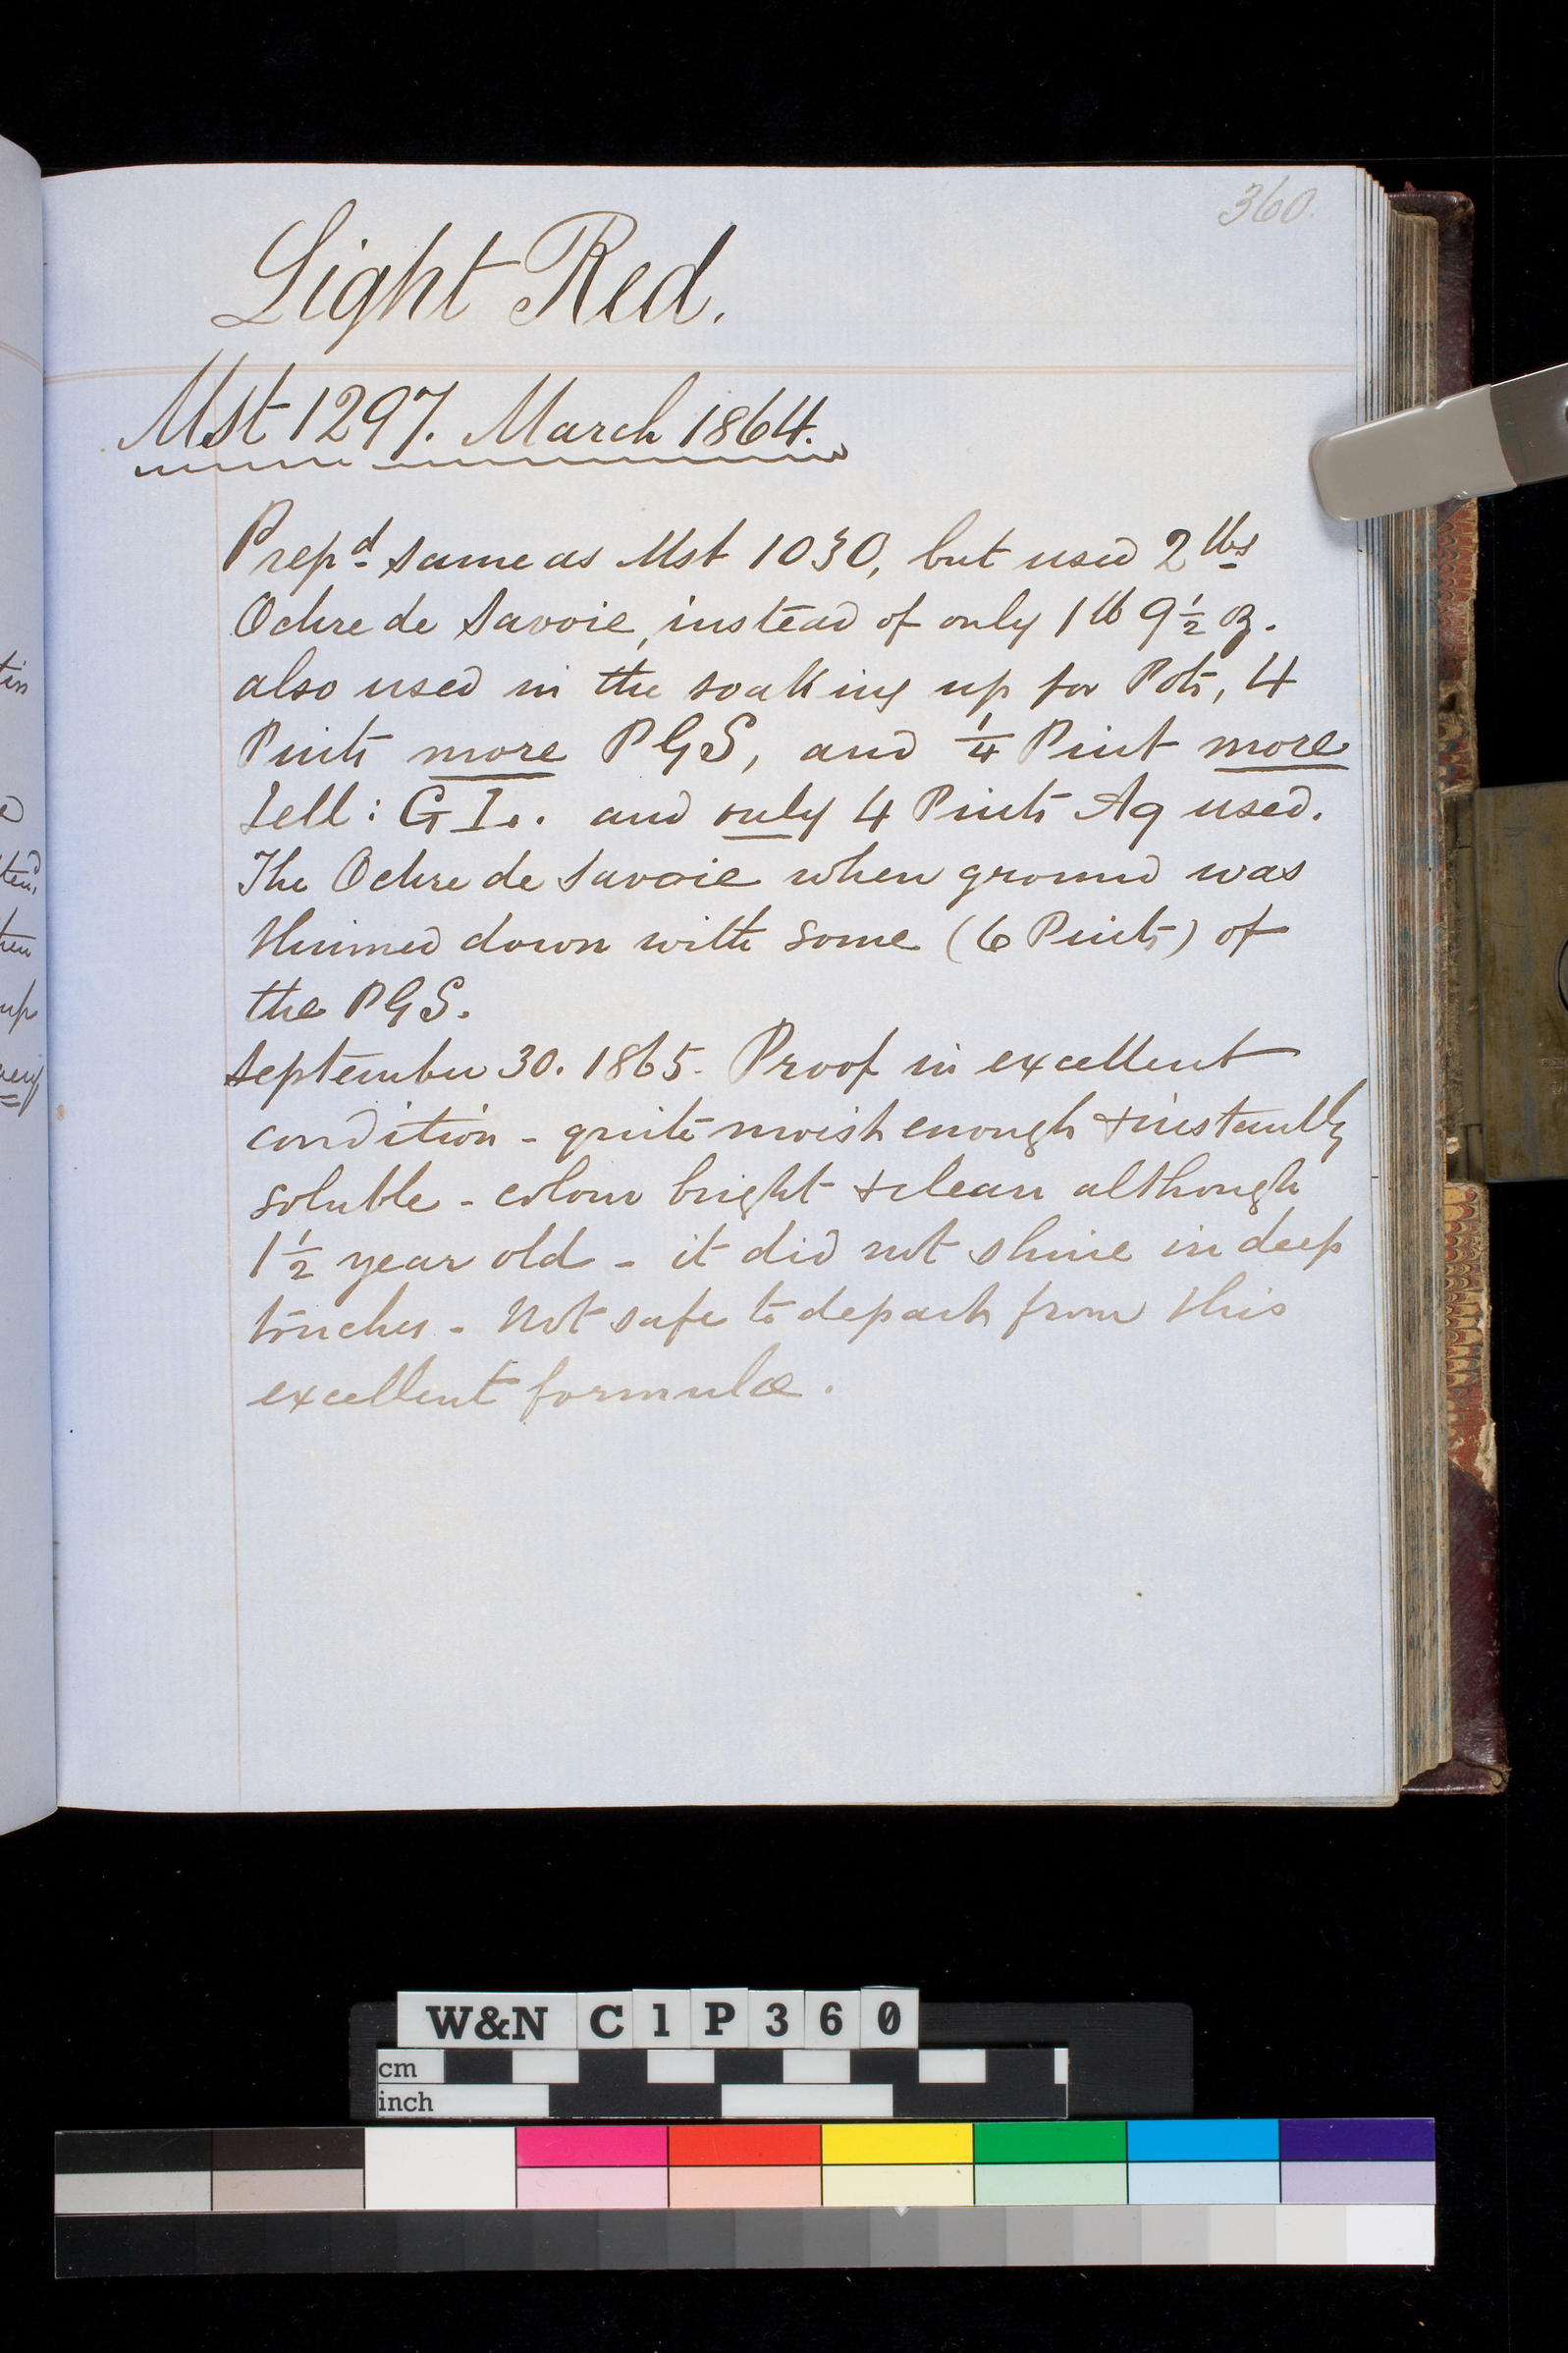 360.
Light Red.
Mst 1297. March 1864.
Prepd same as Mst 1030, but used 2 lbs
Ochre de Savoie, instead of only 1 lb 9½ oz.
also used in the soaking up for Pots, 4
Pints more PGS, and ¼ Pint more
Sell: G I.. and only 4 Pints Aq used.
The Ochre de Savoie when ground was
thinned down with some (6 Pints) of
the PGS.
September 30. 1865. Proof in excellent
condition - quite moist enough + instantly
soluble - colour bright + clean although
1½ year old - it did not shine in deep
touches - Not safe to depart from this
excellent formulæ.
W&N C1P360
cm
inch